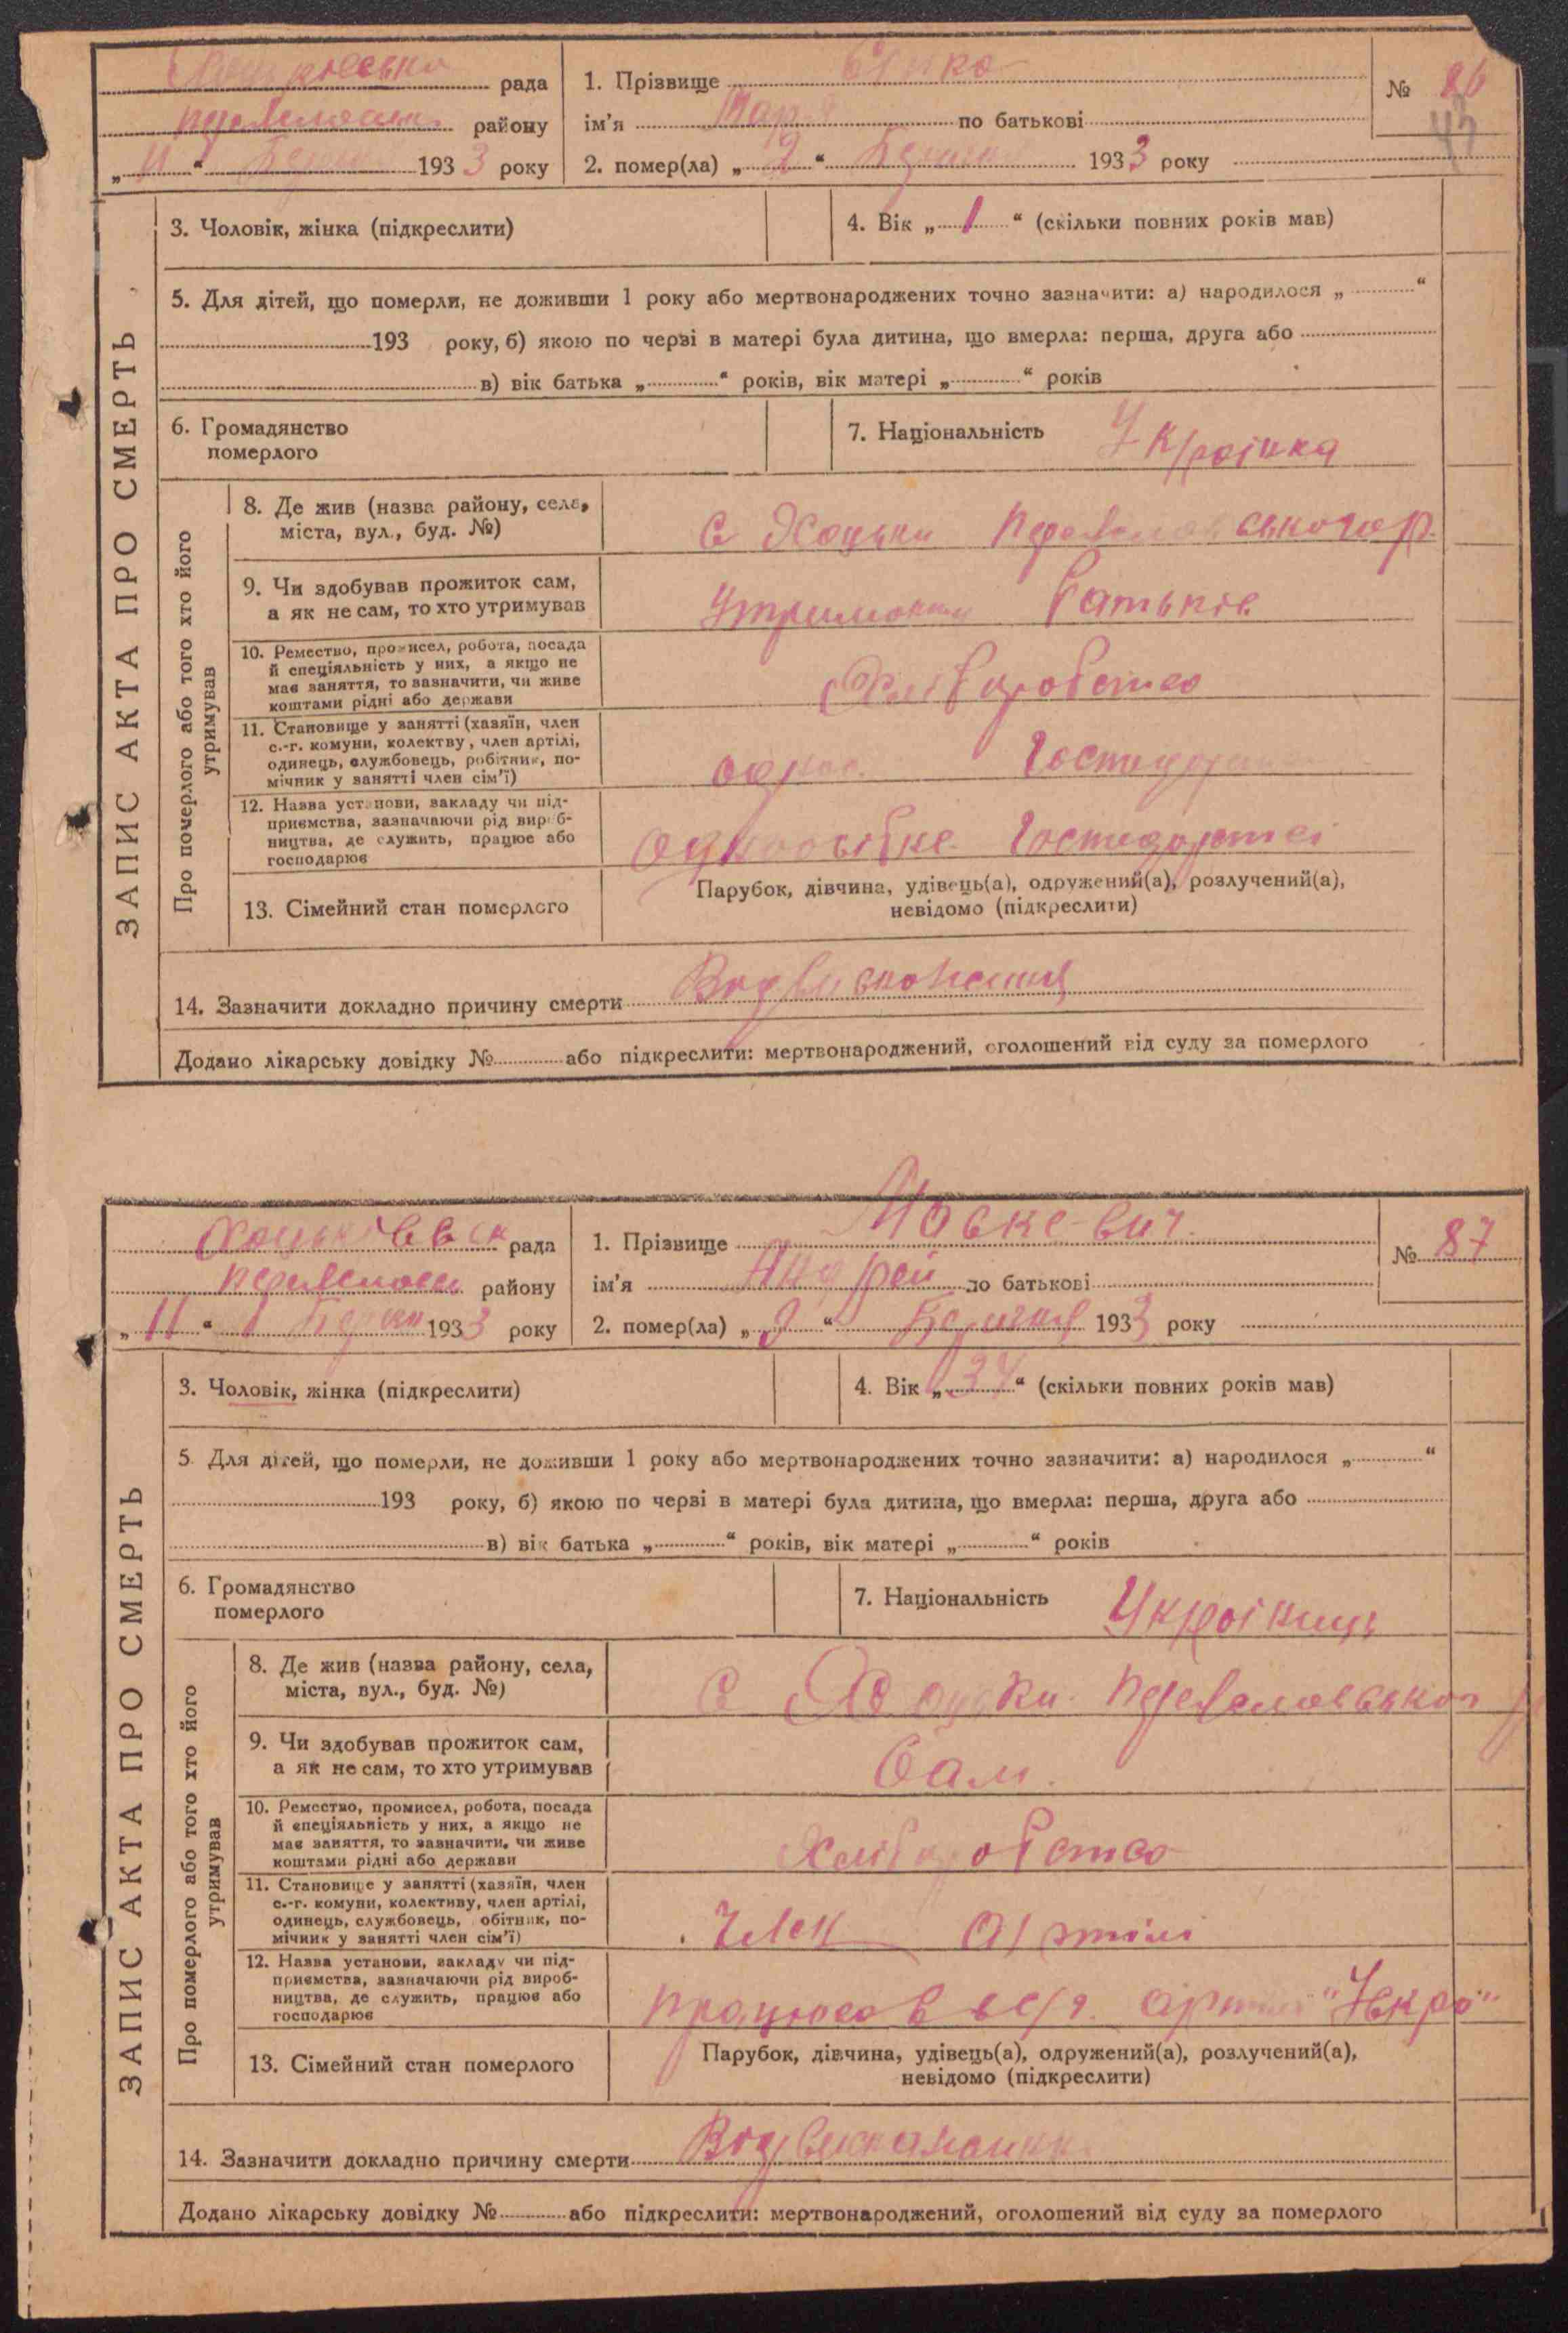 рада
району
"11" 1933 року
1. Прізвище
ім'я по батькові
2. помер(ла) „2“ Березня 1933 року
№ 86
47
ЗАПИС АКТА ПРО СМЕРТЬ
3. Чоловік, жінка (підкреслити)
4. Вік „1“ (скільки повних років мав)
5. Для дітей, що померли, не доживши 1 року або мертвонароджених точно зазначити: а) народилося „ “
193 року, б) якою по черзі в матері була дитина, що вмерла: перша, друга або
в) вік батька „ “ років, вік матері „ “ років
6. Громадянство
померлого
7. Національність Українка
Про померлого або того хто його
утримував
8. Де жив (назва району, села,
міста, вул., буд. №)
с Хоцьки
9. Чи здобував прожиток сам,
а як не сам, то хто утримував
батьків
10. Ремество, промисел, робота, посада
й спеціяльність у них, а якщо не
має заняття, то зазначити, чи живе
коштами рідні або держави
Хліборобство
11. Становище у занятті (хазяїн, член
с.-г. комуни, колектву, член артілі,
одинець, службовець, робітник, по-
мічник у занятті член сім'ї)
12. Назва установи, закладу чи під-
приємства, зазначаючи рід вироб-
ництва, де служить, працює або
господарює
13. Сімейний стан померлого
Парубок, дівчина, удівець(а), одружений(а), розлучений(а),
невідомо (підкреслити)
14. Зазначити докладно причину смерти
Додано лікарську довідку № або підкреслити: мертвонароджений, оголошений від суду за померлого
рада
району
„11“ 1933 року
1. Прізвище Маскевич.
ім'я Андрей по батькові
2. помер(ла) „ “ Березня 1933 року
№ 87
ЗАПИС АКТА ПРО СМЕРТЬ
3. Чоловік, жінка (підкреслити)
4. Вік „ “ (скільки повних років мав)
5. Для дітей, що померли, не доживши 1 року або мертвонароджених точно зазначити: а) народилося „ “
193 року, б) якою по черзі в матері була дитина, що вмерла: перша, друга або
в) вік батька „ “ років, вік матері „ “ років
6. Громадянство
померлого
7. Національність Українець
Про померлого або того хто його
утримував
8. Де жив (назва району, села,
міста, вул., буд. №)
с Хоцьки
9. Чи здобував прожиток сам,
а як не сам, то хто утримував
Сам.
10. Ремество, промисел, робота, посада
й спеціяльність у них, а якщо не
має заняття, то зазначити, чи живе
коштами рідні або держави
Хліборобство
11. Становище у занятті (хазяїн, член
с.-г. комуни, колективу, член артілі,
одинець, службовець, обітник, по-
мічник у занятті член сім'ї)
Член Артілі
12. Назва установи, закладу чи під-
приємства, зазначаючи рід вироб-
ництва, де служить, працює або
господарює
13. Сімейний стан померлого
Парубок, дівчина, удівець(а), одружений(а), розлучений(а),
невідомо (підкреслити)
14. Зазначити докладно причину смерти
Додано лікарську довідку № або підкреслити: мертвонароджений, оголошений від суду за померлого